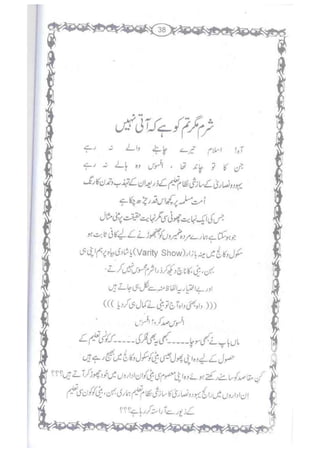 38
شرم مگر تم کو ہے کہ آتی نہیں
آہ! اسلام تیرے چاہنے والے نہ رہے
جن کا تو چاند تھا ، افسوس وہ ہالے نہ رہے
یہود و نصاریٰ کے سازشی نظام تعلیم کے ذریعہ ان کے تہذیب و تمدن کا رنگ
امت مسلمہ پر کچھ اس قدر چڑھ چکا ہے
جس کی ایک نہایت چھوٹی سی مگر نہایت حقیقت پر مبنی مثال
جو ہو سکتا ہے ہمارے مردہ ضمیروں کو جھنجھوڑنے کے لیے کافی ثابت ہو
سکول و کالج میں مینہ بازار (Varity Show) یا شادی بیاہ پر ہم اپنی ہی
بہن، بیٹی، کا ناچ دیکھ کر ذرا شرم محسوس نہیں کرتے۔
اور بے اختیار یہ الفاظ منہ سے نکل ہی جاتے ہیں
((( واہ بھئی واہ آج تو بیٹی نے کمال ہی کر دیا )))
افسوس صد کروڑ افسوس
ماں باپ نے کبھی سوچا۔۔۔۔۔کبھی یہ بھی فکر کی۔۔۔۔۔کہ کونسی تعلیم کے
حصول کے لیے وہ اپنی پھول جیسی بیٹی کو سکول و کالج میں بھیج رہے ہیں
کن مقاصد کو سامنے رکھتے ہوئے وہ اپنی معصوم سی بیٹی کو ان اداروں میں خود چھوڑ کر آتے ہیں؟؟؟
ان اداروں میں رائج یہود و نصاریٰ کا سازشی نظام تعلیم ہماری بہن، بیٹی کو کون سی تعلیم
کے زیور سے آراستہ کر رہا ہے؟؟؟